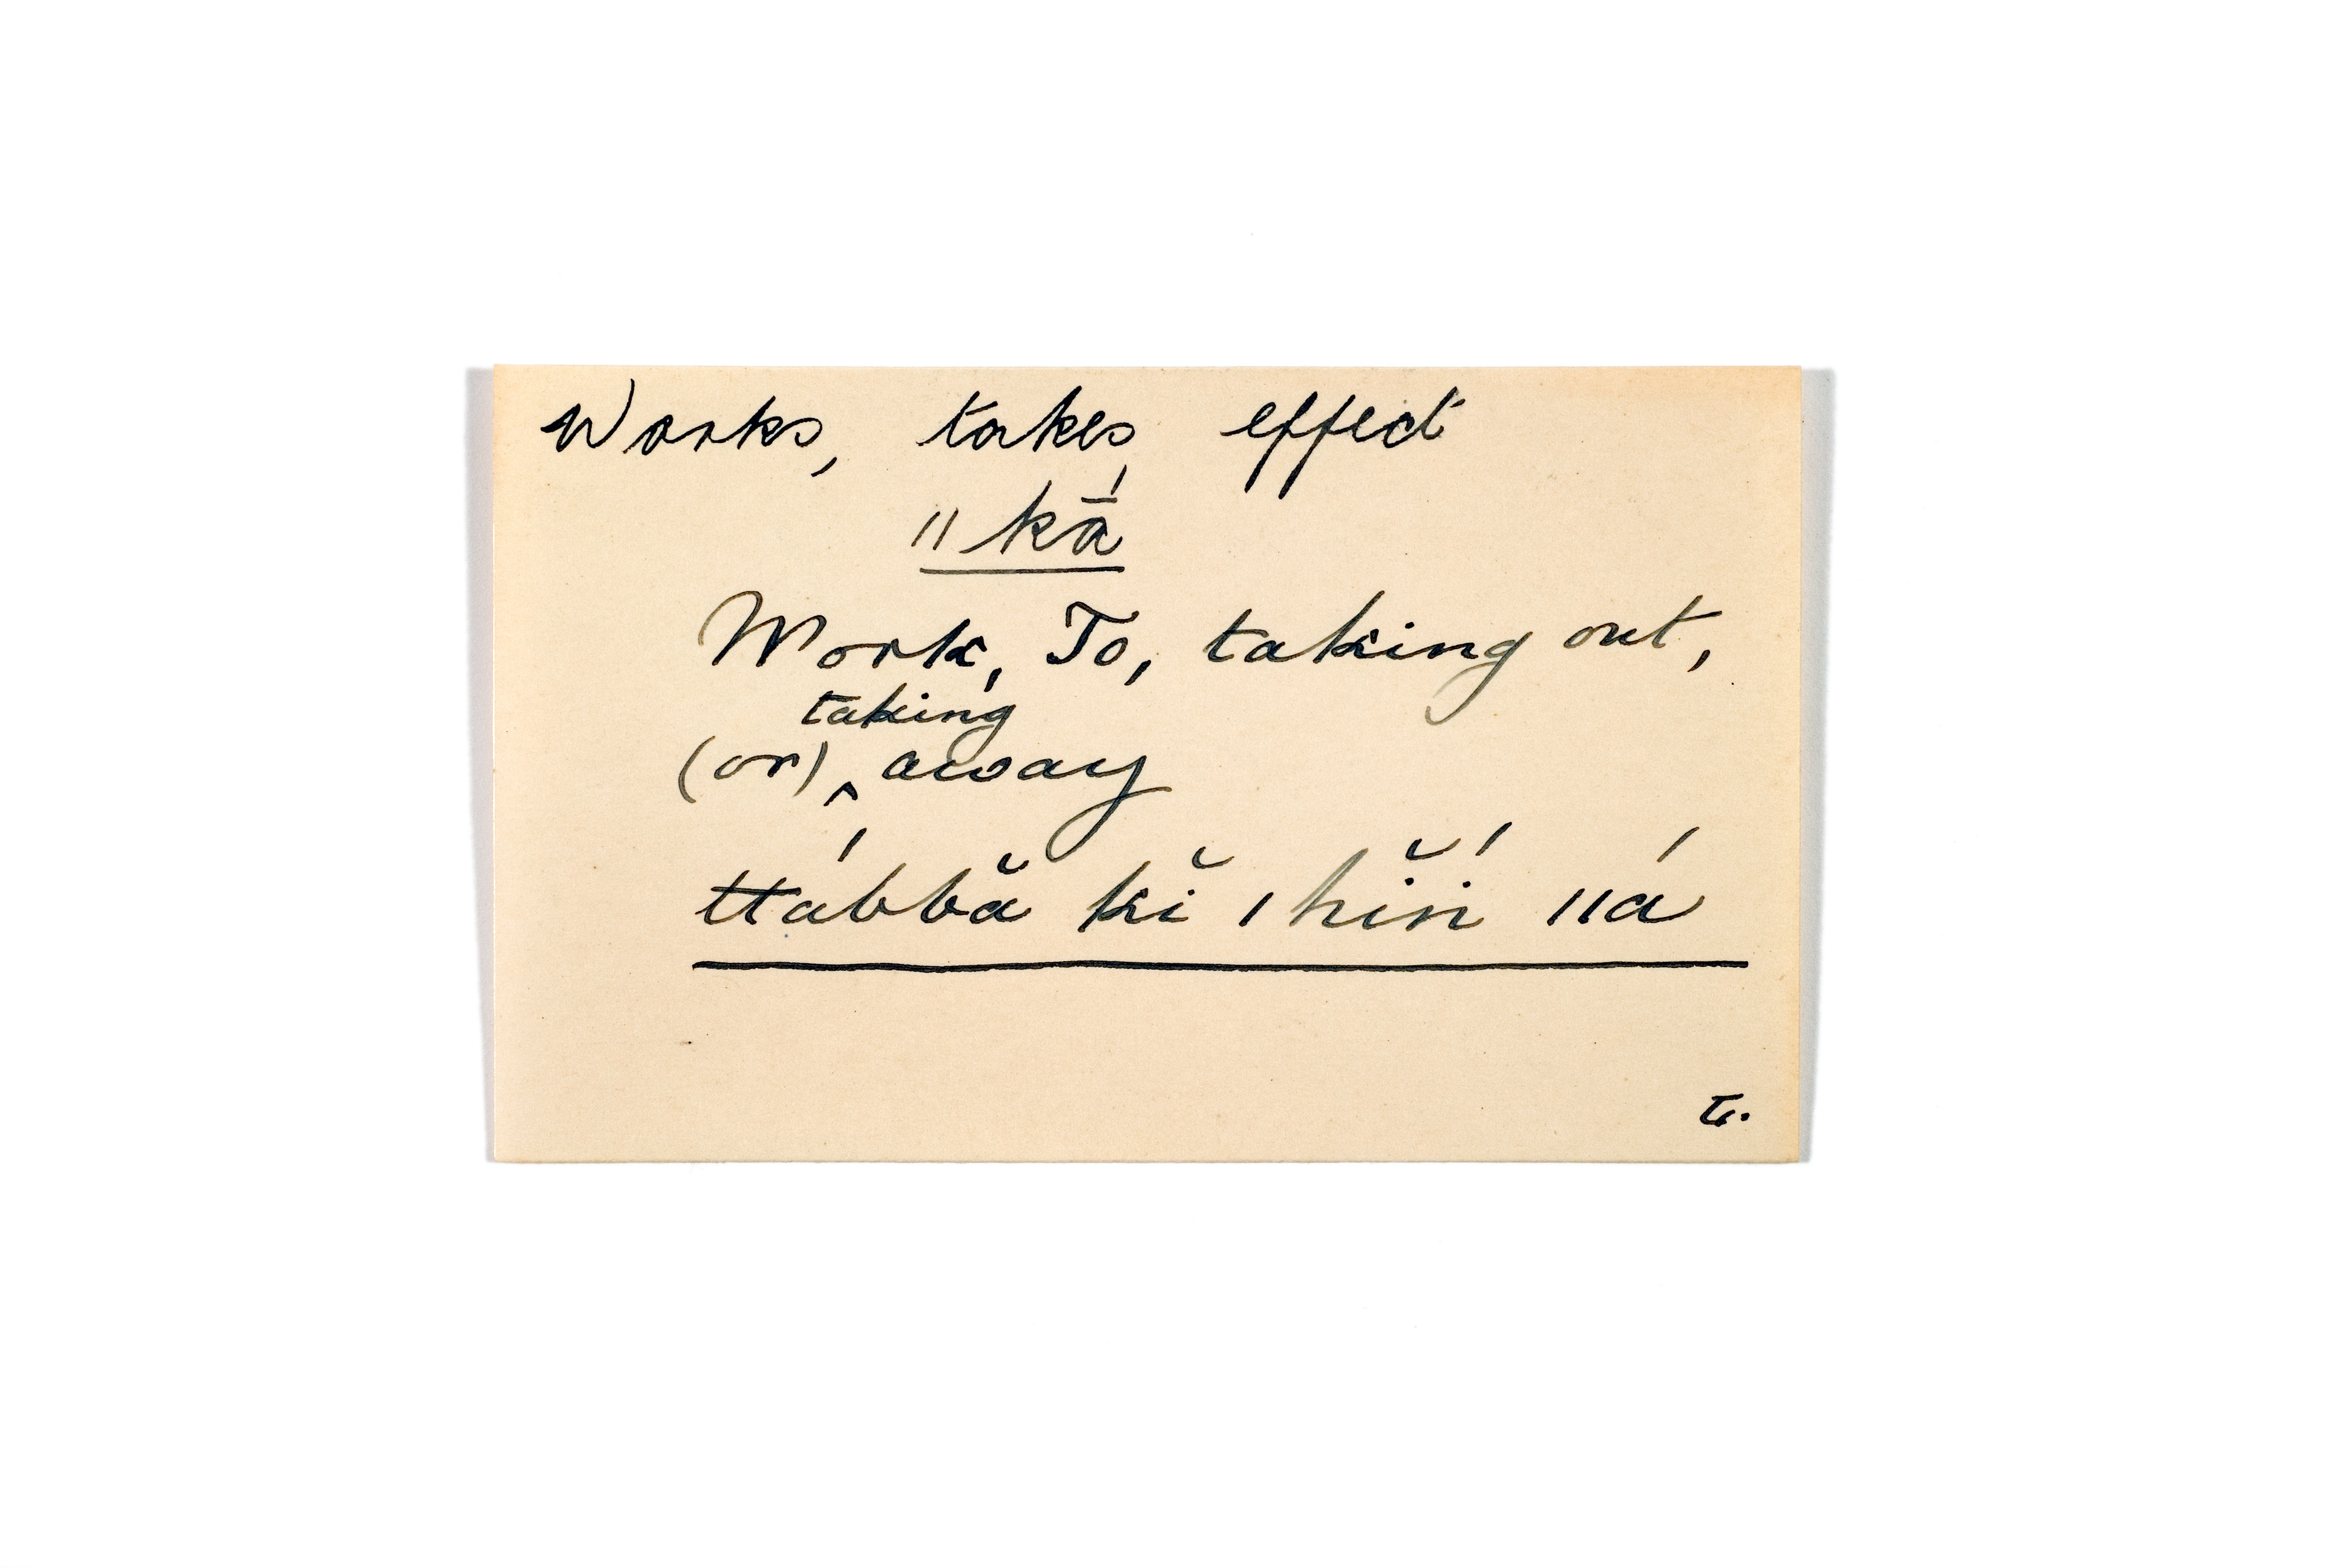 Works, takes effect
"kā́
Work, To, taking out,
(or) ‸taking away
ttábbă kĭ ˈhĭń ˈˈá